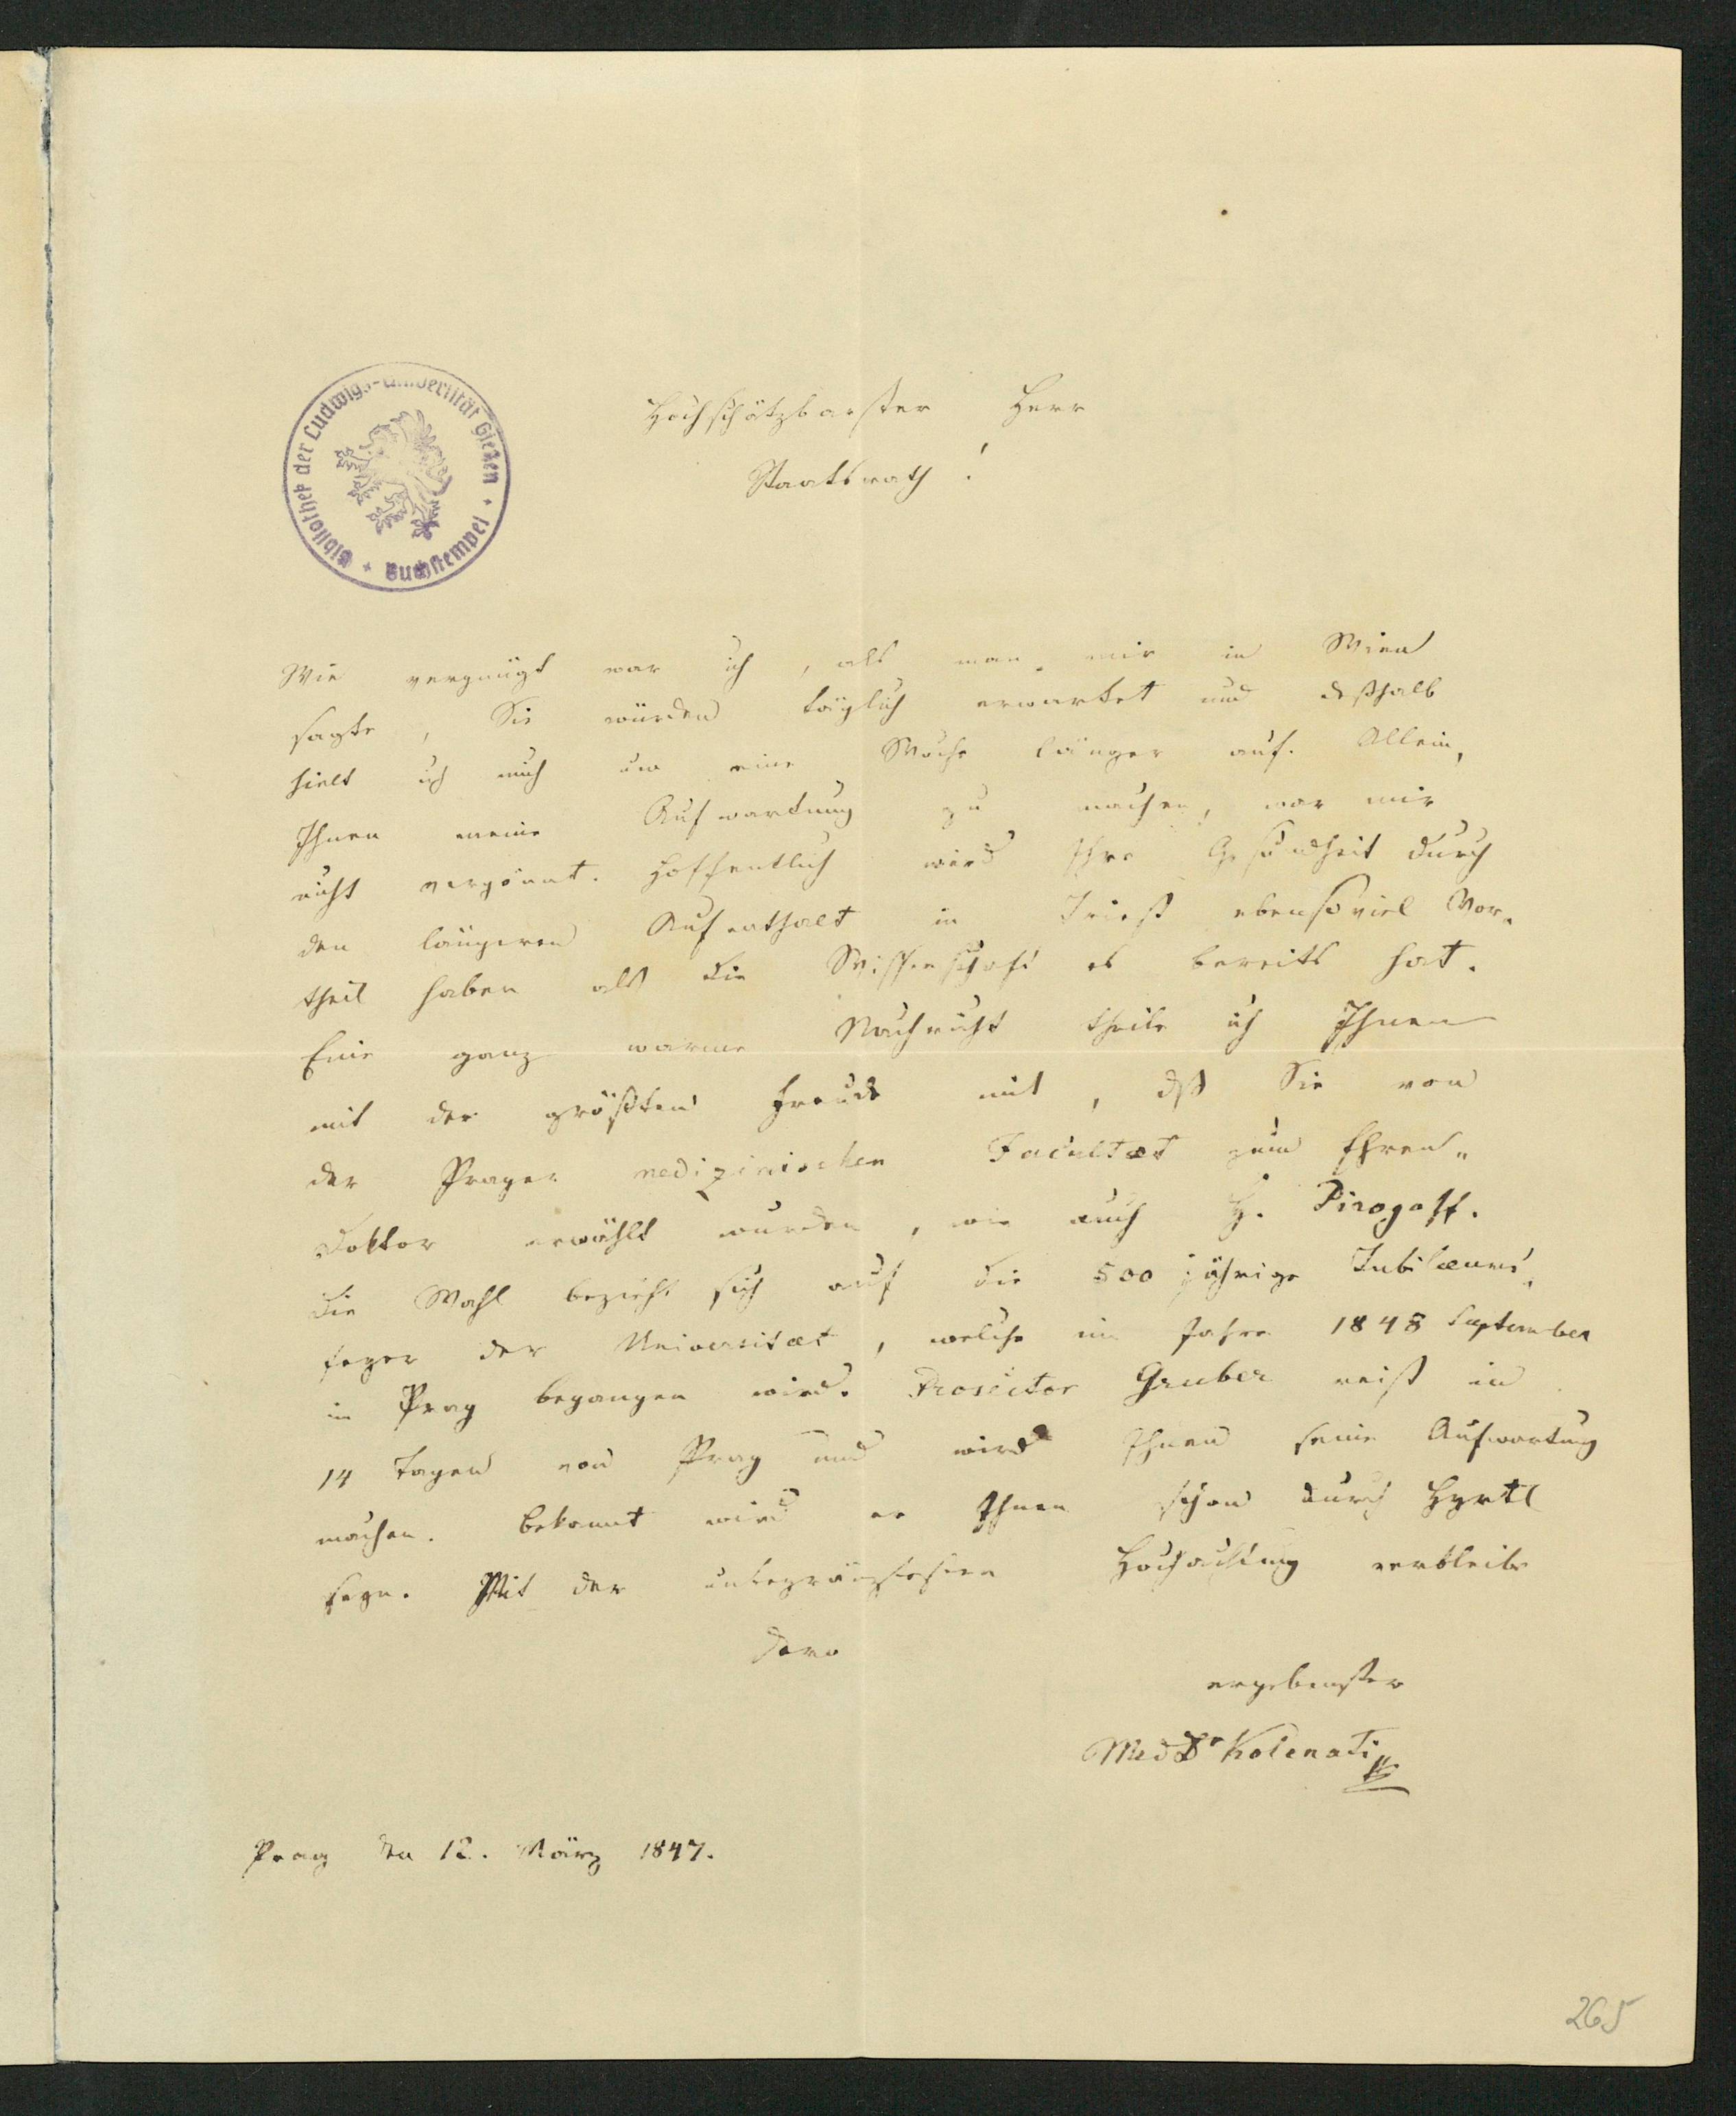 Bibliothek der Ludwigs-Universität Giezen + Buchstempel +
Hochschätzbarster Herr
Staatsrath !
Wie vergnügt war ich, als man mir in Wien
sagte, Sie würden täglich erwartet und deßhalb
hielt ich mich um eine Woche länger auf. Allein,
Ihnen meine Aufwartung zu machen, war mir
nicht vergönnt. Hoffentlich wird Ihre Gesundheit durch
den längeren Aufenthalt in Triest ebensoviel Vor„
theil haben als die Wissenschaft es bereits hat.
Eine ganz warme Nachricht theile ich Ihnen
mit der größten Freude mit, dß Sie von
der Prager medizinischen Facultæt zum Ehren„
doktor erwählt wurden, wie auch H. Pirogoff.
Die Wahl bezieht sich auf die 500 jährige Jubilæums„
feyer der Universitæt, welche im Jahre 1848 September
in Prag begangen wird. Prosector Gruber reist in
14 Tagen von Prag und wird Ihnen seine Aufwartung
machen. Bekannt wird er Ihnen schon durch Hyrtl
seyn. Mit der unbegränztesten Hochachtung verbleibe
Dero
ergebenster
Med Dr Kolenati
Prag den 12. März 1847.
265